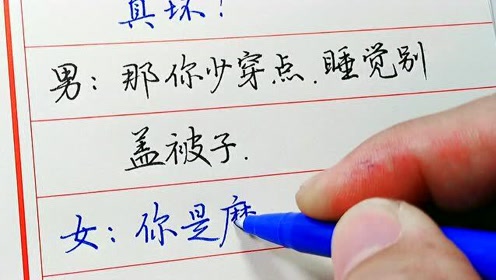 真坏!
男：那你少穿点.睡觉别
盖被子.
女：你是麻